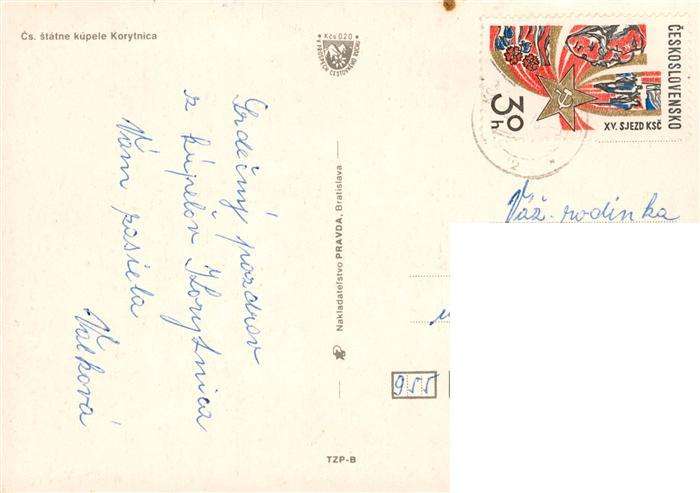 Čs. štátne kúpele Korytnica
Kčs 0.20
Srdečný pozdrav
z kúpelov Korytnica
Vám posiela
Valková
Nakladateľstvo PRAVDA, Bratislava
TZP-B
ČESKOSLOVENSKO
XV. SJEZD KSČ
30
h
Váž. rodinka
955